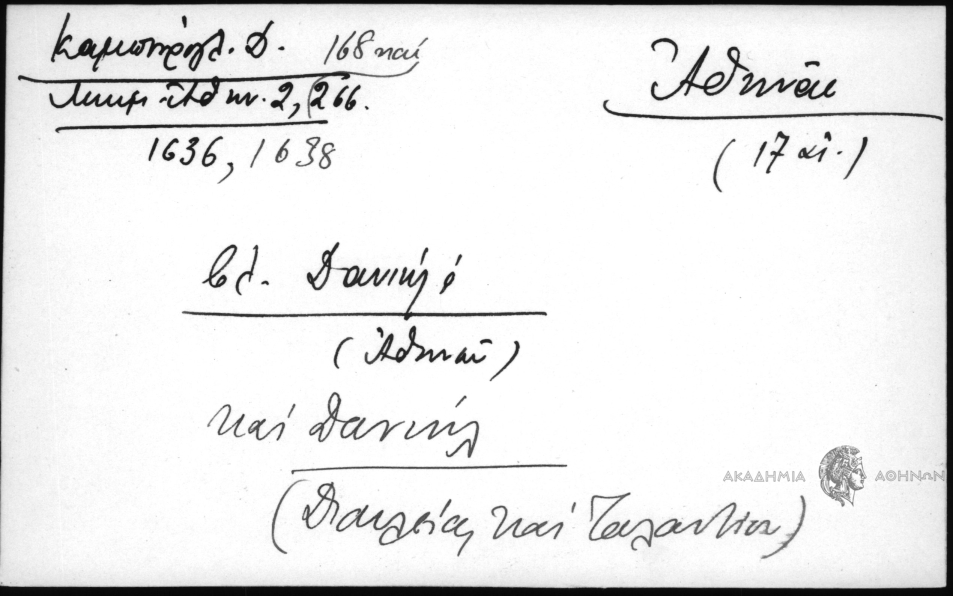 Καμπούρογλ. Δ. 168 καί
Μνημ. Ἀθην. 2, 266.
1636, 1638
Ἀθηνῶν
(17 αἰ.)
βλ. Δανιήλ ὁ
(Ἀθηνῶν)
καί Δανιήλ
(Διαυλείας καί Ταλαντίου)
ΑΚΑΔΗΜΙΑ ΑΘΗΝΩΝ